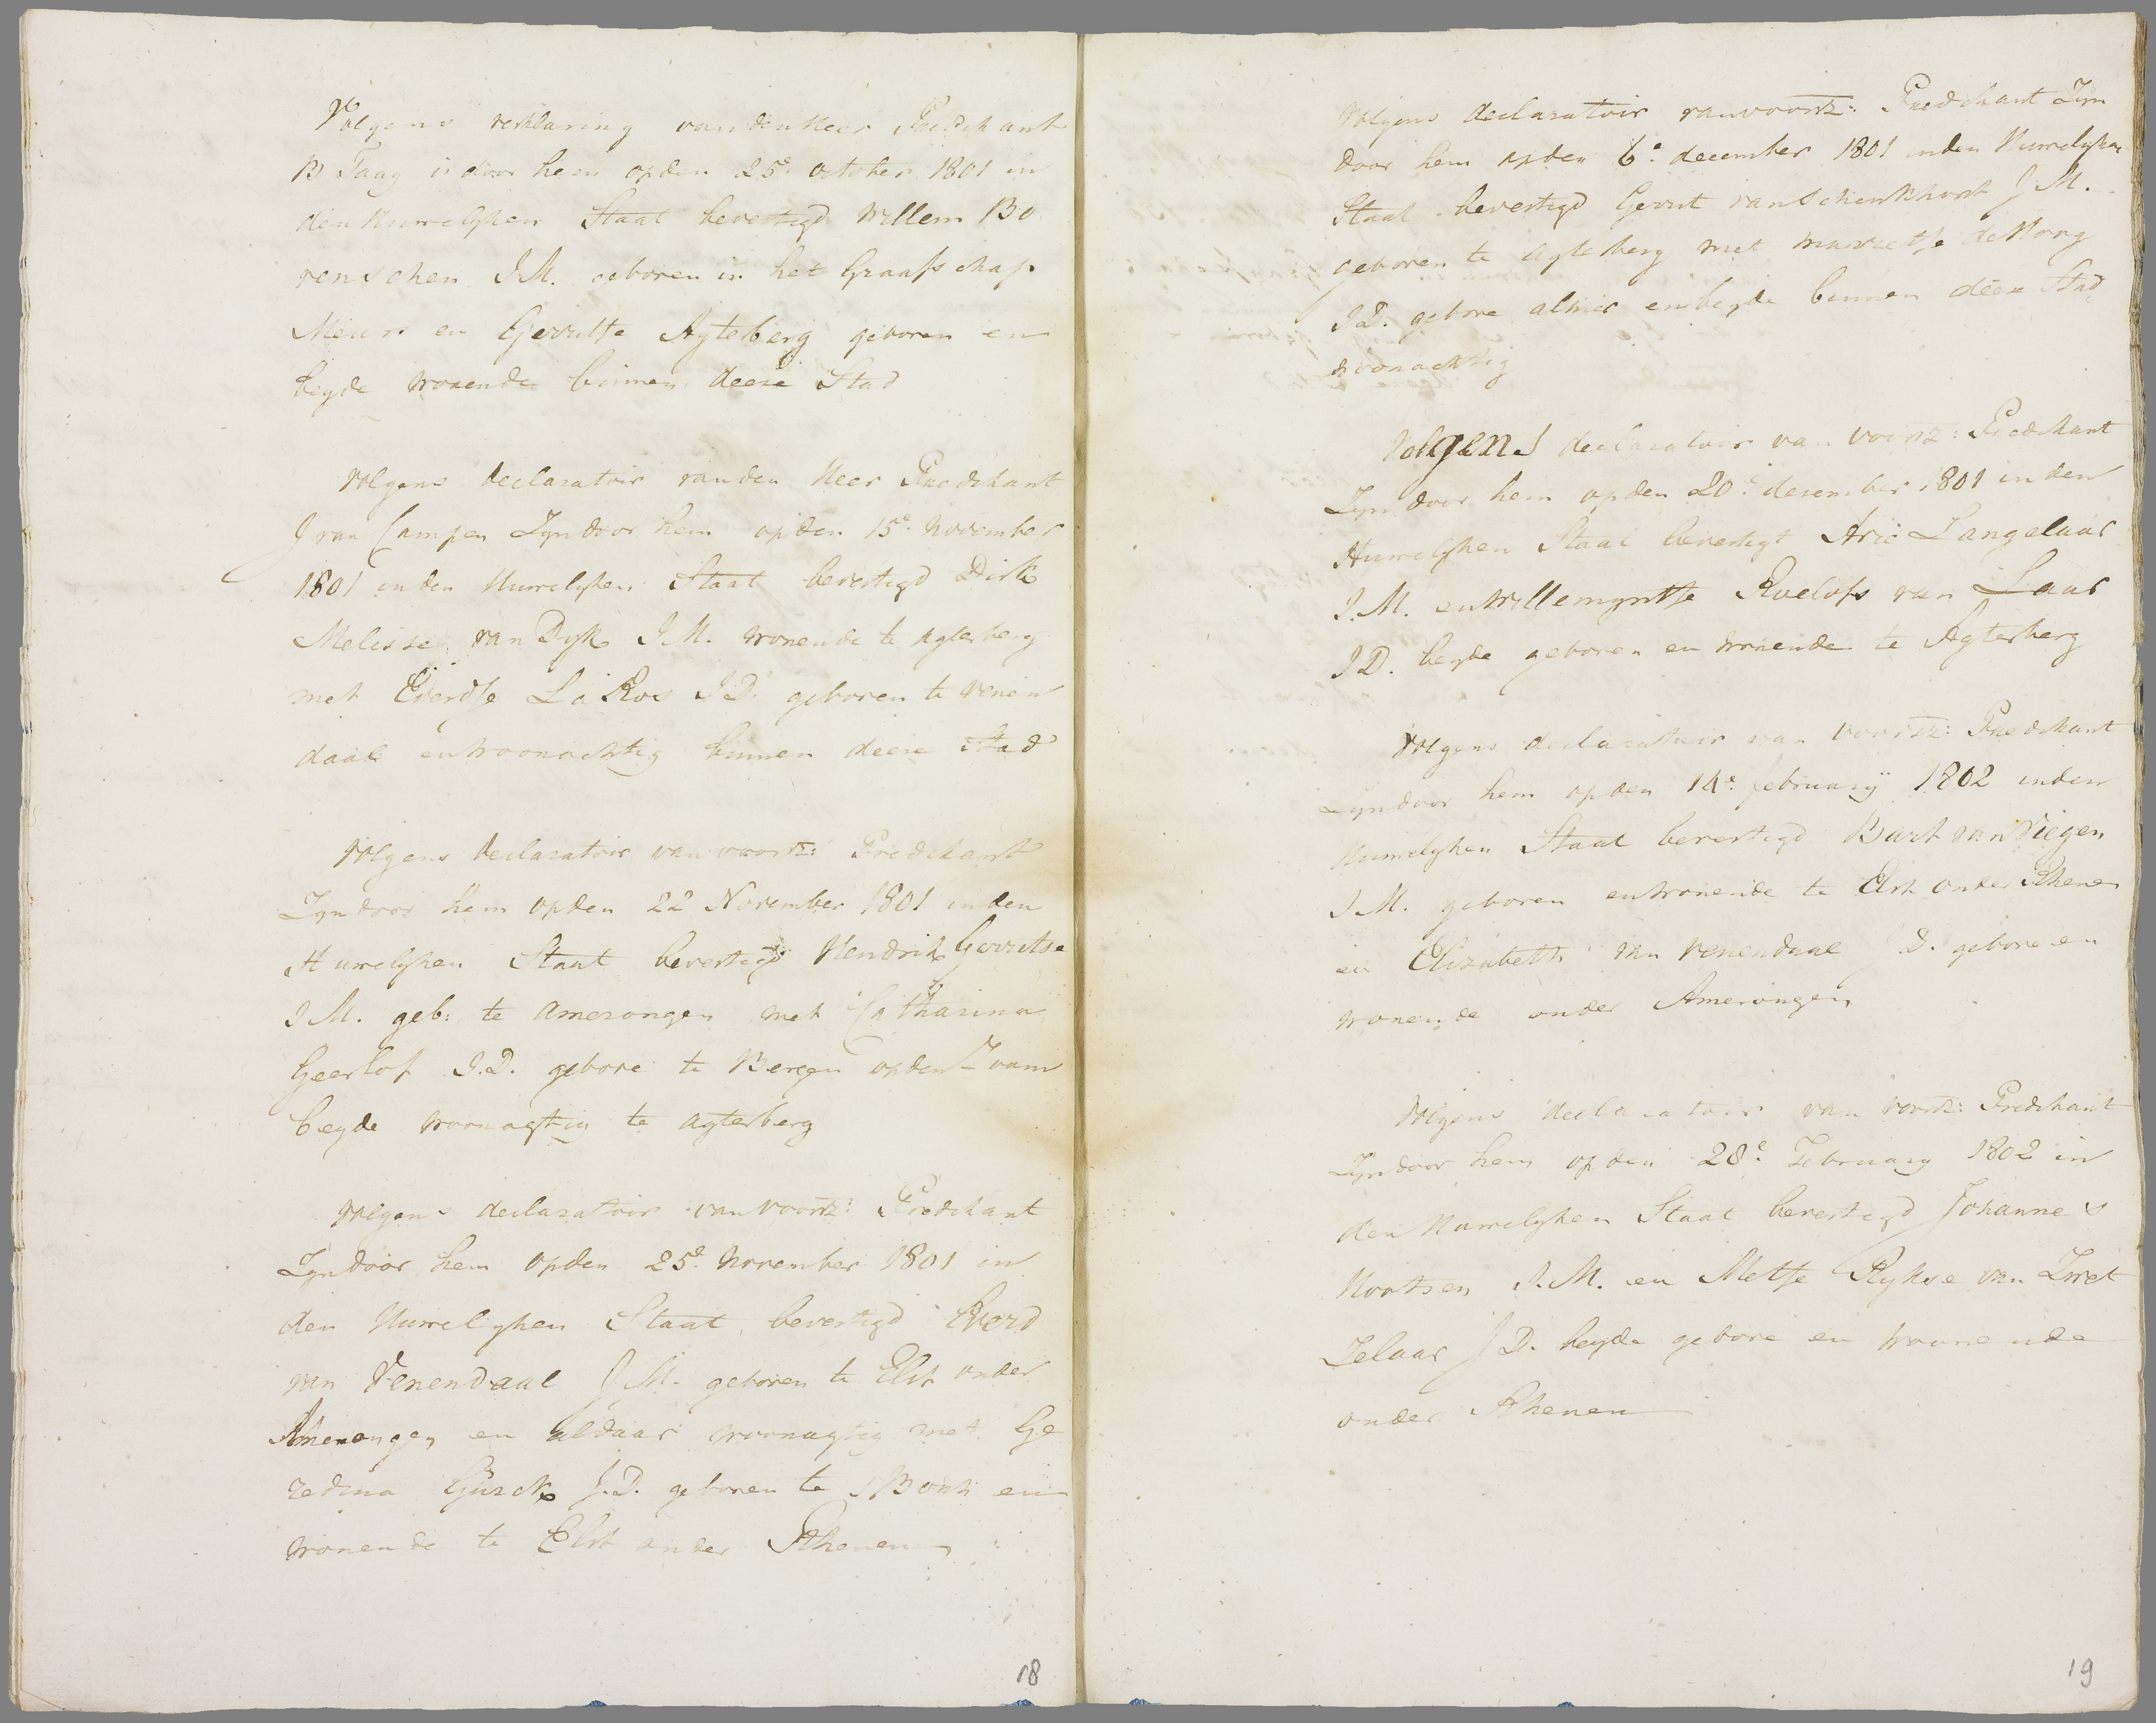 Volgens verklaring van den Heer Predikant
B Taay is door hem op den 25e. october 1801 in
den Huwelyken Staat bevestigd Willem Bo
venschen J.M. geboren in het Graafschap
Meurs en Gerritje Agteberg geboren en
beyde wonende binnen deese Stad
Volgens declaratoir van den Heer Predikant
J van Campen Zyn door hem op den 15e. November
1801 in den Huwelyken Staat bevestigd Dirk
Melisse van Dyk J.M. wonende te Agterberg
met Everdje La Ros J D. geboren te Venen
daal en woonachtig binnen deese Stad
Volgens declaratoir van voorsz: Predikant
Zyn door hem op den 22 November 1801 in den
Huwelyken Staat bevestigd Hendrik Gerritse
J M. geb: te Amerongen met Catharina
Geerlof J.D. gebore te Bergen op den Zoom
beyde woonagtig te Agterberg
Volgens declaratoir van voorsz: Predikant
Zyn door hem op den 25e. November 1801 in
den Huwelyken Staat bevestigd Everd
van Venendaal J M. geboren te Elst onder
Amerongen en aldaar woonagtig met Ge
redina J.D. geboren te en
wonende te Elst onder Rhenen
18
Volgens declaratoir van voorsz: Predikant Zyn
door hem op den 6e. december 1801 in den Huwelyken
Staat bevestigd Gerrit van Schenkhorst J M.
geboren te Agteberg met Marretje de Hoog
J D. gebore alhier en beyde binnen deese Stad
woonachtig
Volgens declaratoir van voorsz: Predikant
Zyn door hem op den 20e. desember 1801 in den
Huwelyken Staat bevestigt Arie Langelaar
J.M. en Willemyntje Roelofs van Laar
J D. beyde geboren en wonende te Agterberg
Volgens declaratoir van voorsz: Predikant
Zyn door hem op den 14e. february 1802 in den
Huwelyken Staat bevestigd Burt van Viegen
J M. geboren en wonende te Elst onder Rhenen
en Elizabeth van Venendaal J D. gebore en
wonende onder Amerongen
Volgens declaratoir van voorsz: Predikant
Zyn door hem op den 28e. February 1802 in
den Huwelyken Staat bevestigd Johannes
Hootsen J.M. en Metje Rykse van Zwet
Zelaar J D. beyde gebore en woonende
onder Rhenen
19